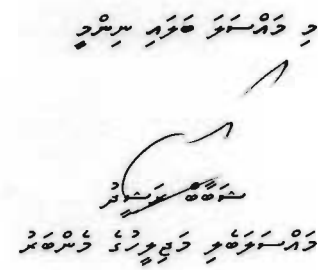 މި މައްސަލަ ބަލައި ނިންމީ
ޝަބާބް ރަޝީދު
މައްސަލަބެލި މަޖިލީހުގެ މެންބަރު